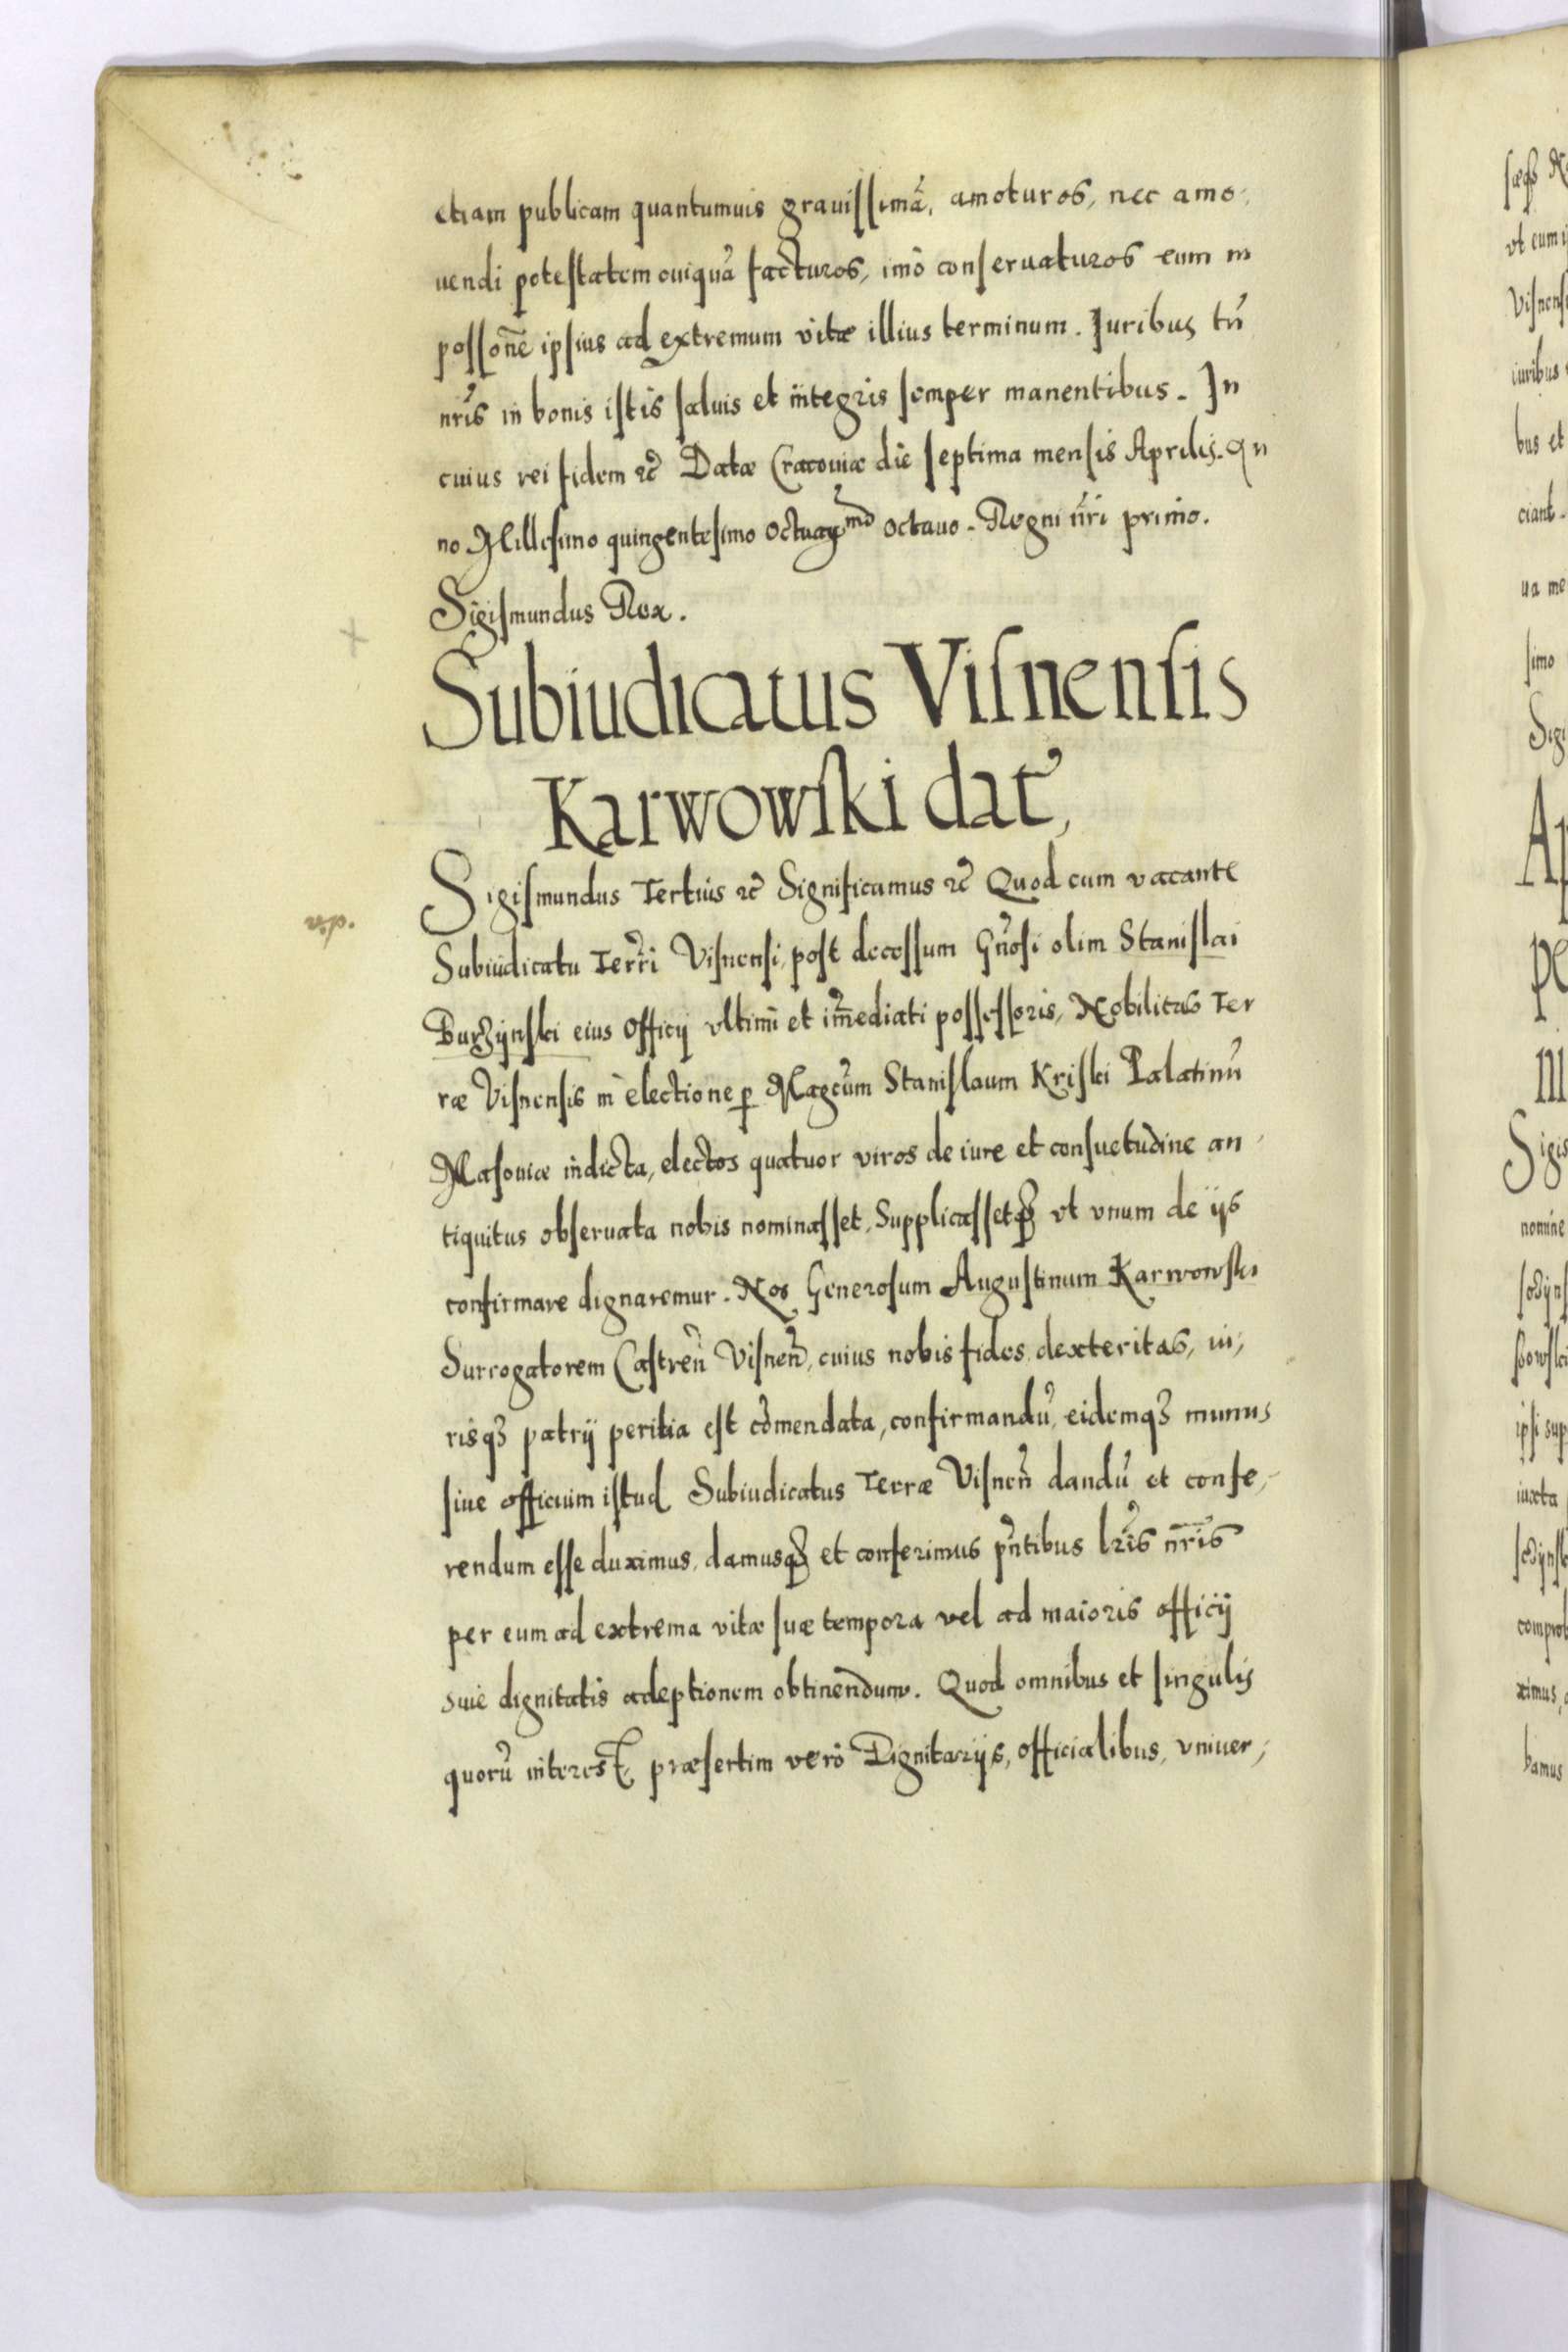 etiam publicam quantumuis grauissimā, amoturos, nec amo-
uendi potestatem cuiquā facturos, imò conseruaturos eum in
possonē ipsius ad extremum vitæ illius terminum. Iuribus tn̄
nr̄is in bonis istis saluis et integris semper manentibus. In
cuius rei fidem &c̄ Datæ Cracouiæ die septima mensis Aprilis. An
no Millesimo quingentesimo octuagmo octauo. Regni nr̄i primo.
Sigismundus Rex.
Subiudicatus Visnensis
Karwowski dat̄,
Sigismundus Tertius &c̄ Significamus &c̄ Quod cum vacante
Subiudicatu Terr̄i Visnensi, post decessum Gn̄osi olim Stanislai
Burzynski eius officij vltimi et im̄ediati possessoris, Nobilitas Ter
ræ Visnensis in electione ꝑ Magcūm Stanislaum Kriski Palatinū
Masouiæ indicta, electos quatuor viros de iure et consuetudine an-
tiquitus obseruata nobis nominasset, Supplicassetqꝫ vt vnum de ijs
confirmare dignaremur. Nos Generosum Augustinum Karwowski
Surrogatorem Castren̄ Visnen̄, cuius nobis fides, dexteritas, iu-
risqꝫ patrij peritia est cōmendata, confirmandū, eidemqꝫ munus
siue officium istud Subiudicatus Terræ Visnen̄ dandū et confe-
rendum esse duximus, damusqꝫ et conferimus pn̄tibus lr̄is nr̄is
per eum ad extrema vitæ suæ tempora vel ad maioris officij
suie dignitatis adeptionem obtinendum. Quod omnibus et singulis
quorū interest, præsertim verò Dignitarijs, officialibus, vniuer-